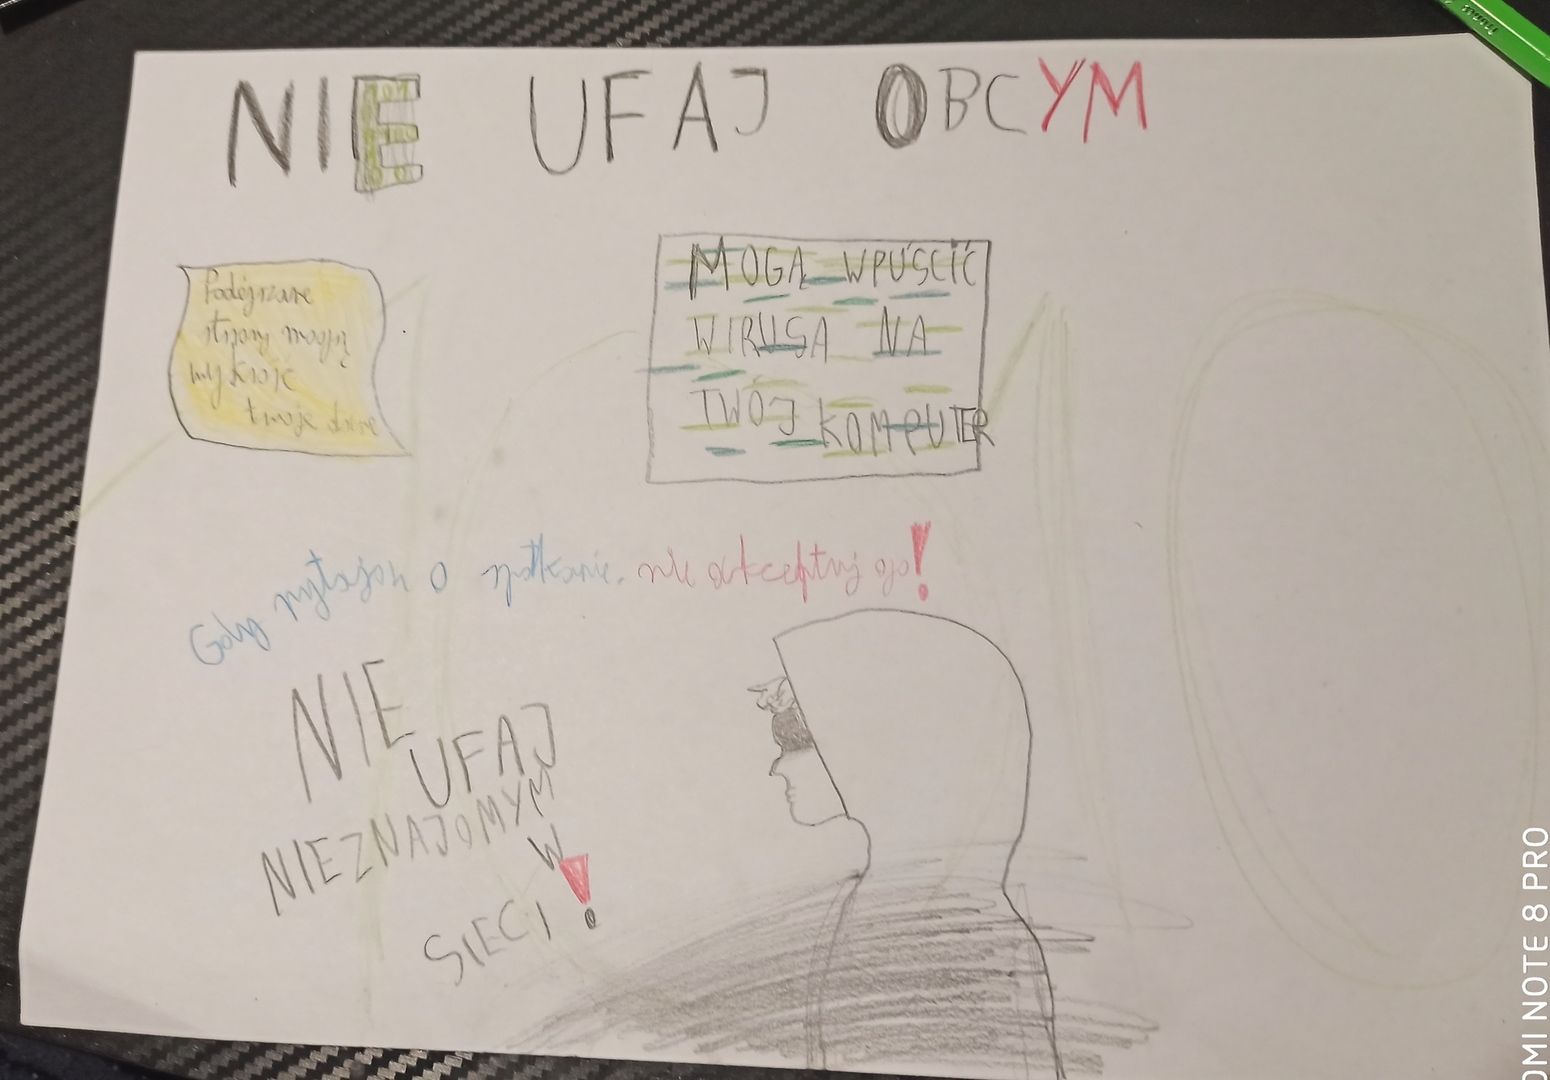 NIE UFAJ OBCYM
Podejrzane
strony mogą
wykraść
twoje dane
MOGĄ WPUŚCIĆ
WIRUSA NA
TWÓJ KOMPUTER
Gdy o spotkanie, nie akceptuj go!
NIE
UFAJ
NIEZNAJOMYM
W
SIECI!
OMI NOTE 8 PRO